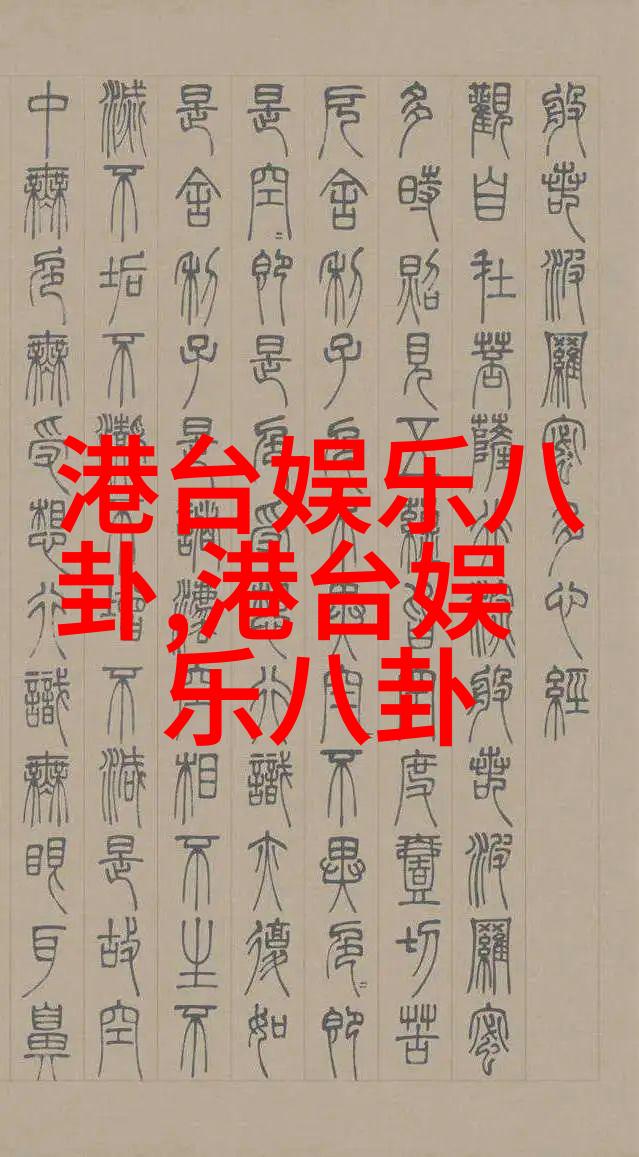 般若波羅蜜多心經
觀自在菩薩行深般若波羅蜜
多時照見五蘊皆空度壹切苦
厄舍利子色不異空不異色即
是空即是色受想行識亦復如
是舍利子是諸法空相不生不
滅不垢不淨不增不減是故空
中無色無受想行識無眼耳鼻
港台娱乐八
卦,港台娱
乐八卦